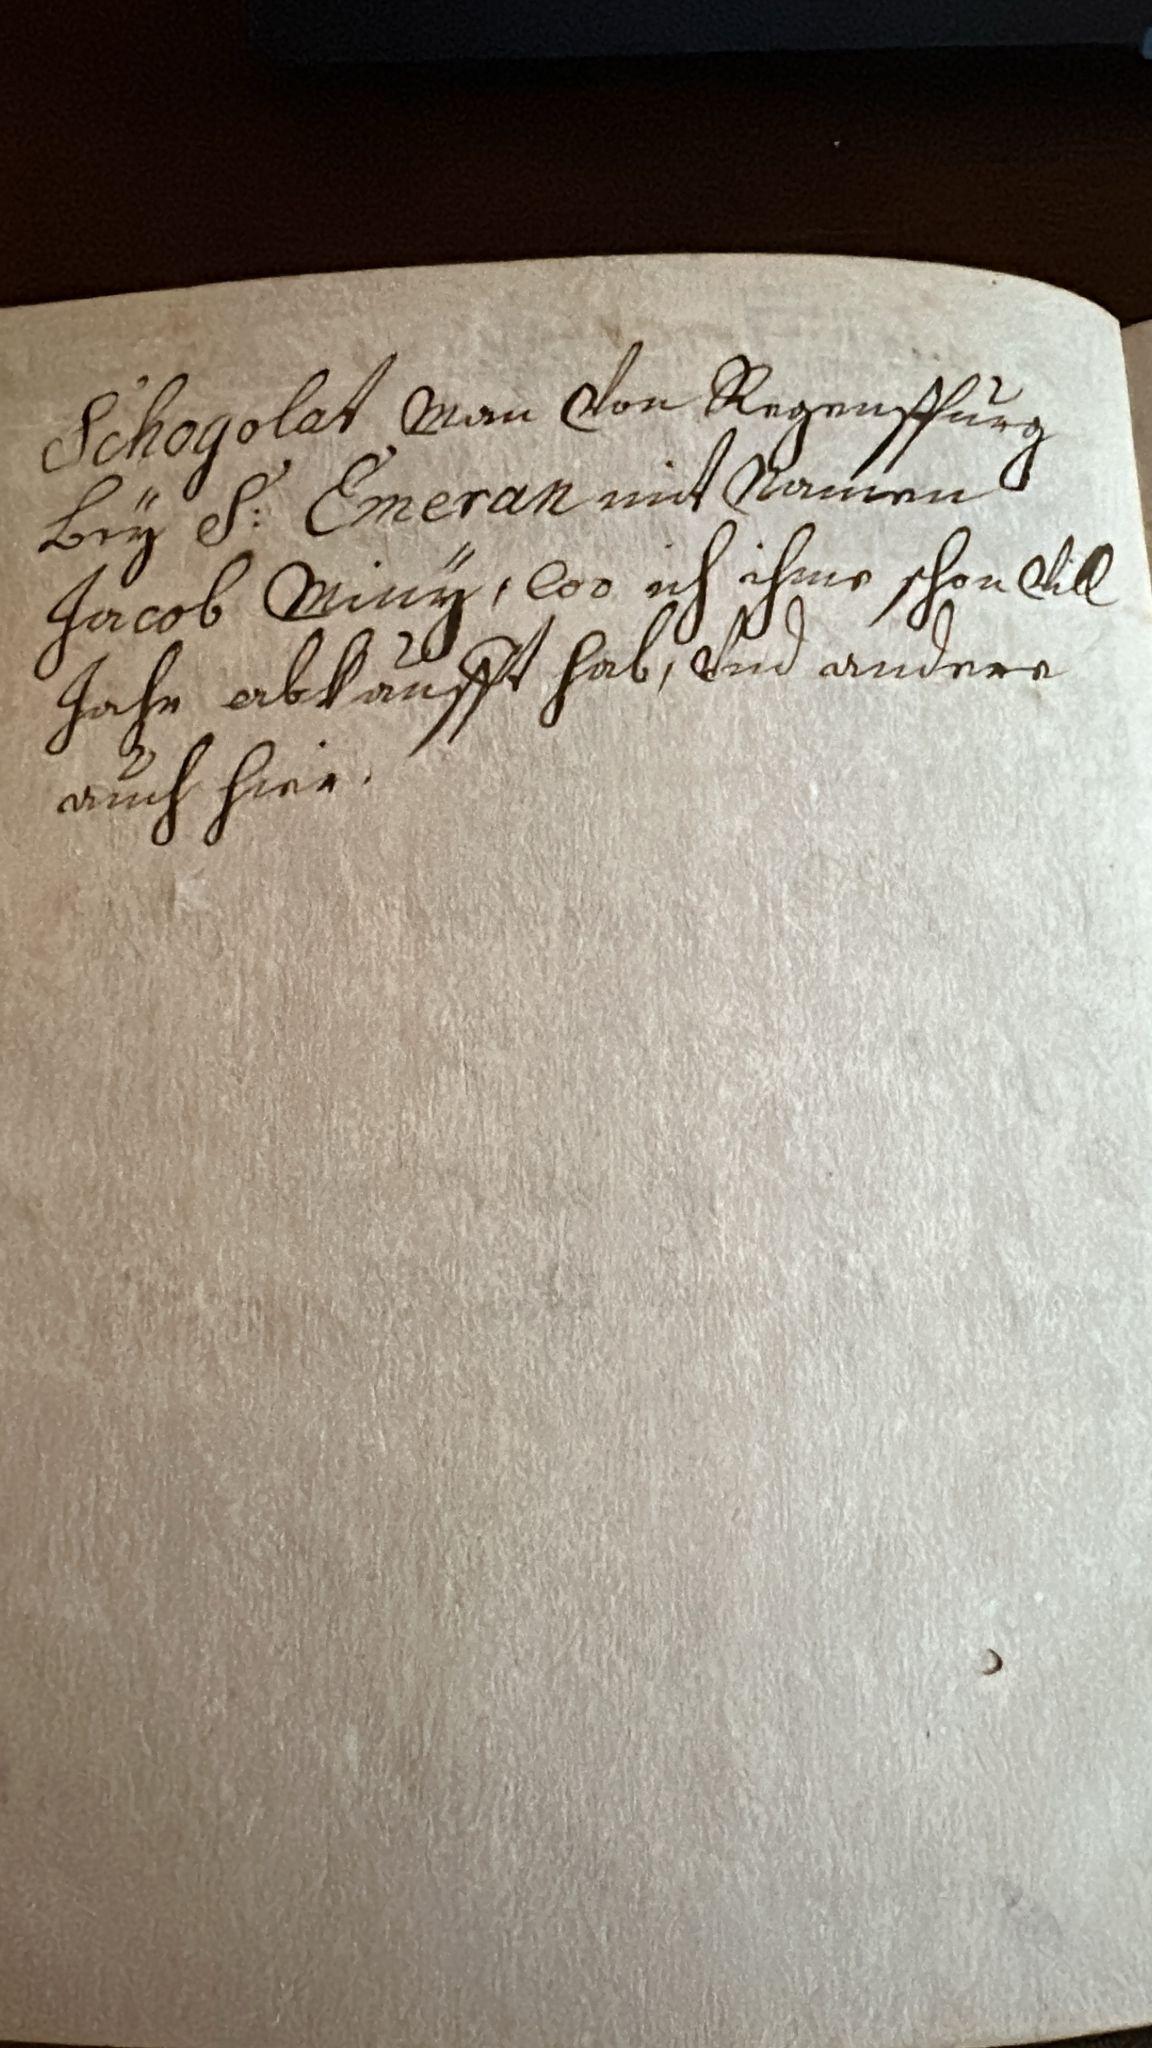 Schogolat Man von Regenspurg
beÿ S: Emeran mit Namen
Jacob Minÿ, wo ich ihme schon vill
Jahr abkaufft hab, vnd andere
auch hier.